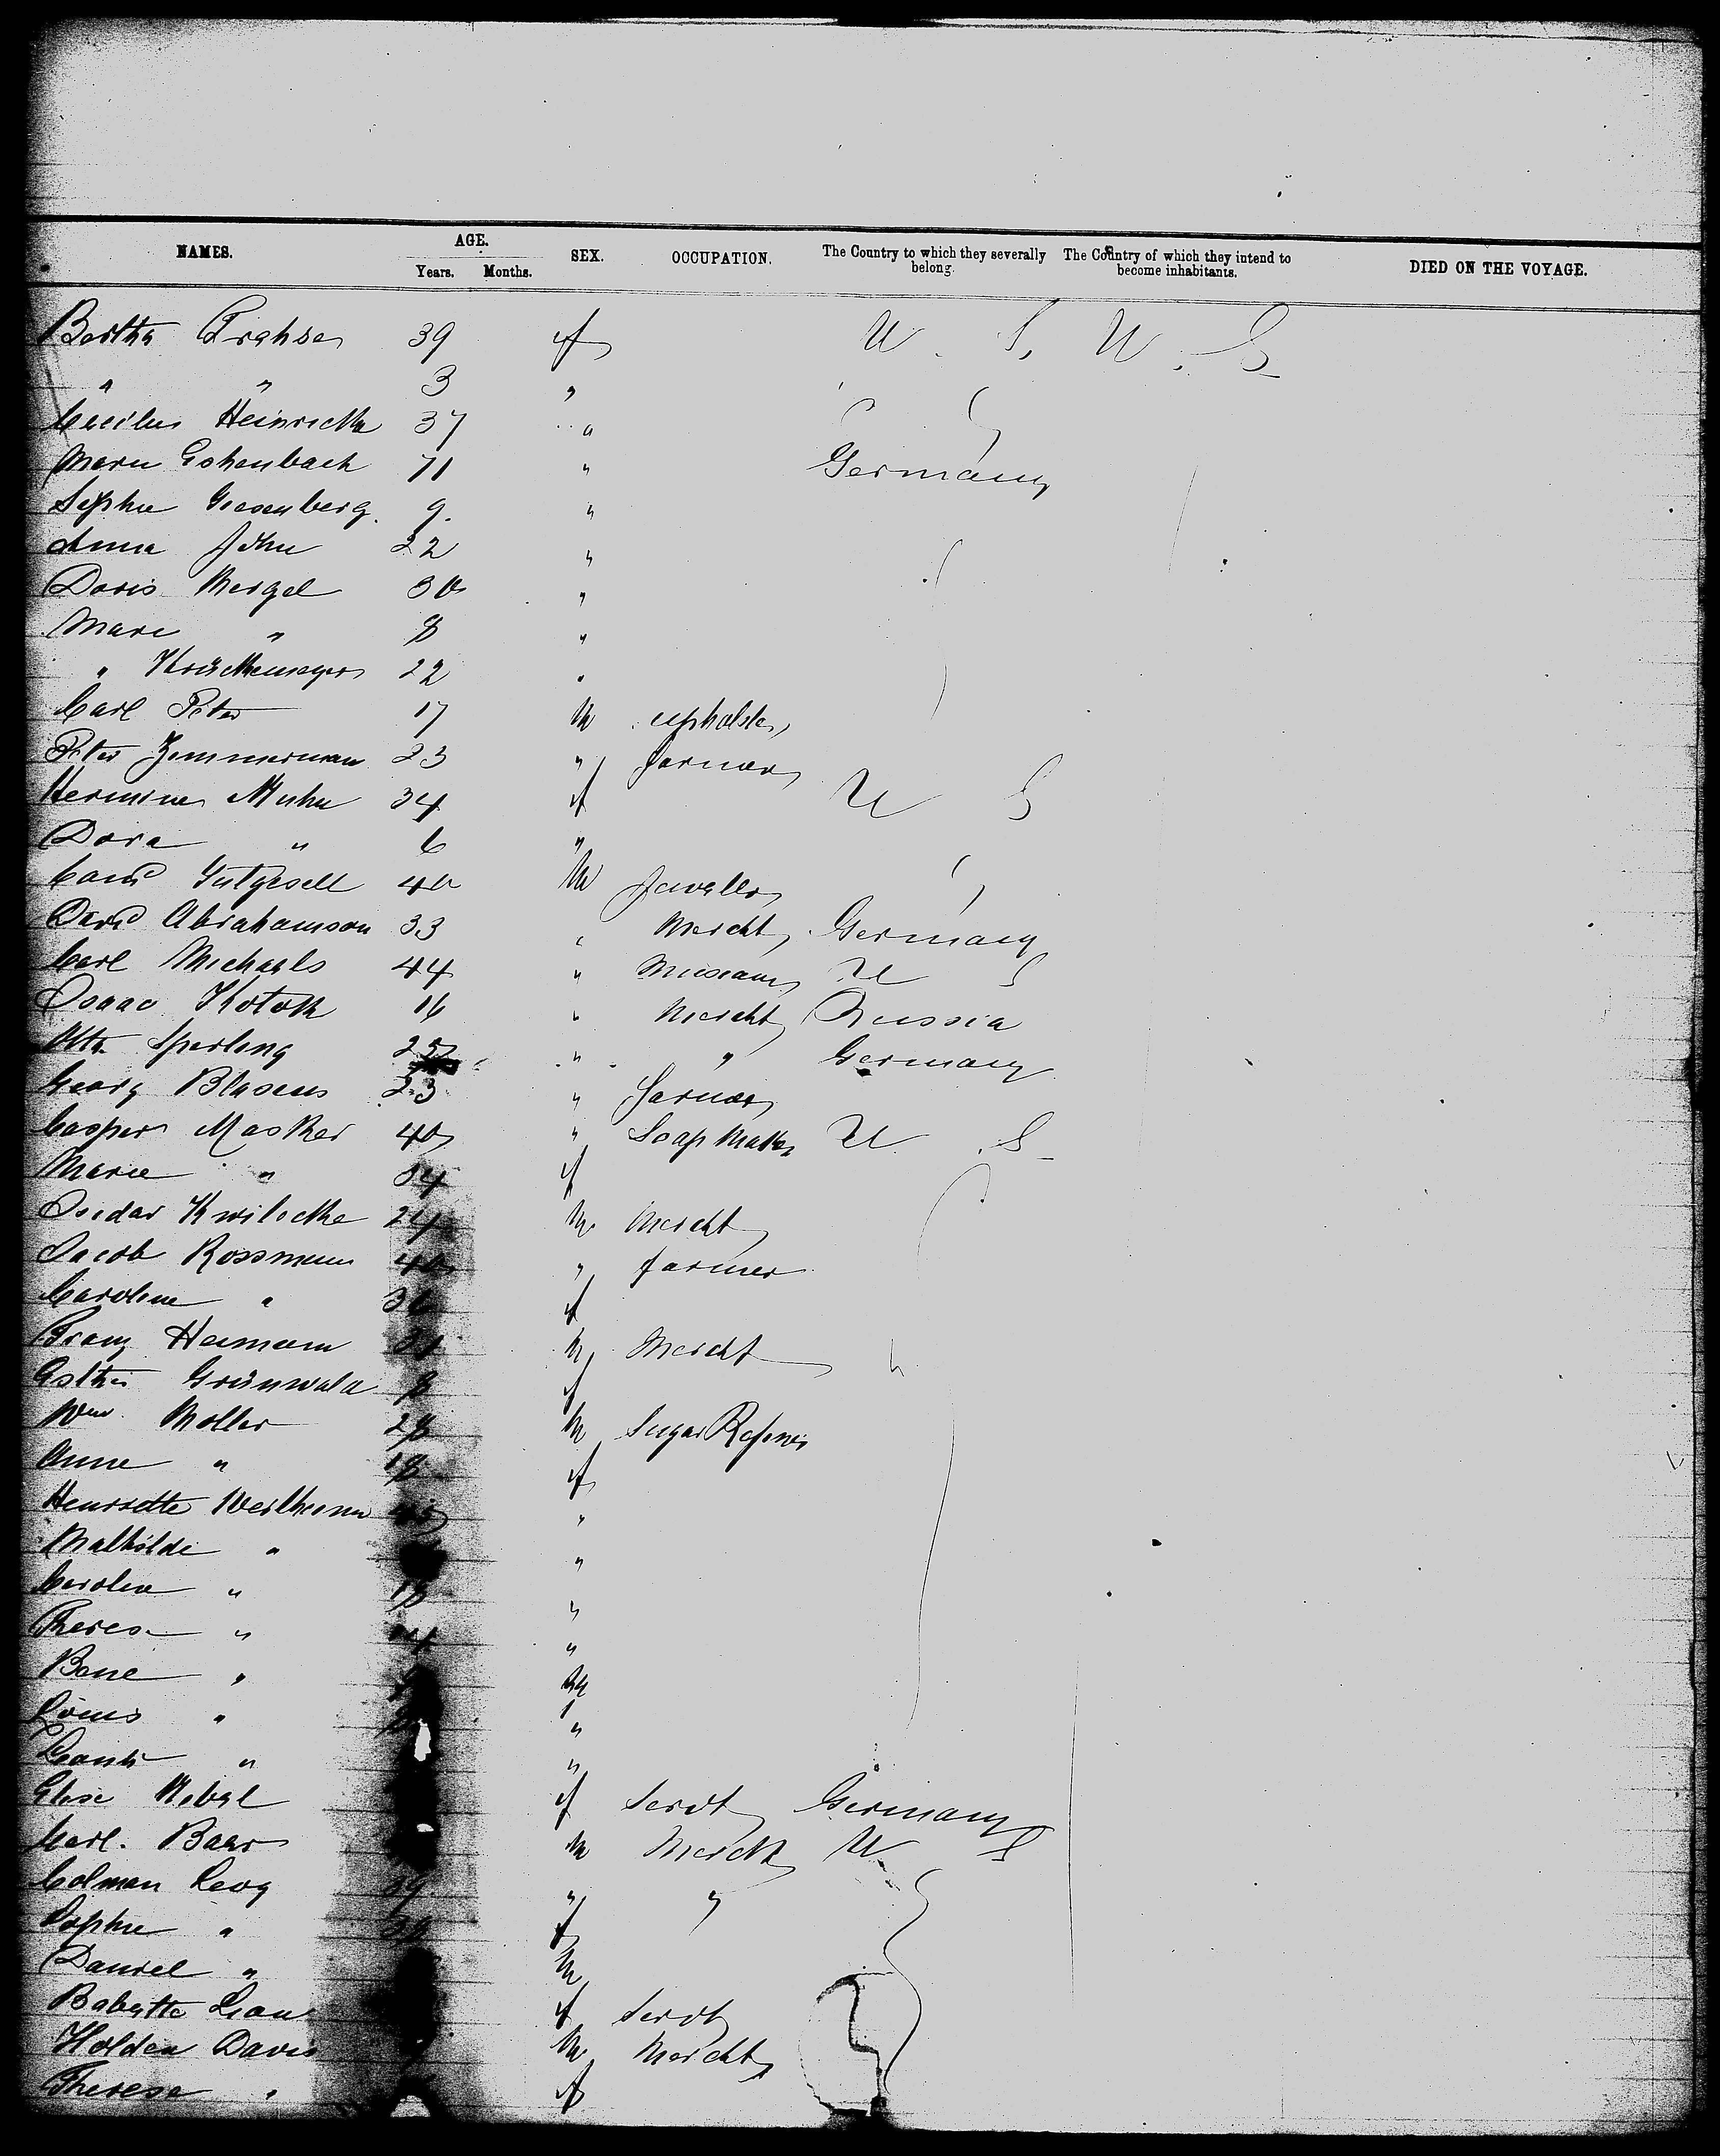 NAMES. AGE. Years. Months. SEX. OCCUPATION. The Country to which they severally belong. The Country of which they intend to become inhabitants. DIED ON THE VOYAGE.
Bertha 39 f U. S. U. S
" " 3 "
Heinricke 37 "
Marie Eshenbach 71 " Germany
Sophie Giesenberg. 9. "
Anna John 22 "
Doris Mergel 30 "
Marie " 8 "
" 22 "
Carl Peter 17 M upholster
Peter Zimmerman 23 " farmer
Hermine Muhn 34 f U S
Dora " 6 "
Gutgesell 40 M Jeweller
David Abrahamson 33 " Mercht Germany
Carl Michaels 44 " U S
Isaac 16 " Mercht Russia
Otto Sperling 23 " " Germany
Georg Blaseus 23 " farmer
Casper Masker 40 " Soap Maker U S
Marie " 34 f
Isidar Kwilecke 24 M Mercht
Jacob Rossmann 40 " farmer
Caroline " 36 f
Franz Heimann M Mercht
Esther Grünwald 8 f
Wm Moller 28 M Sugar Refiner
Anne " 18 f
Henriette Wertheim "
Mathilde " "
Carolin " 18 "
Theres " "
Bene " M
Louis " "
" "
Elise Nebel f Servt Germany
Carl. Baer M Mercht U S
Colman Levy 39 " "
Sophie " 38 f
Daniel " M
Babette f Servt
Holden Davis M Mercht
Therese " f